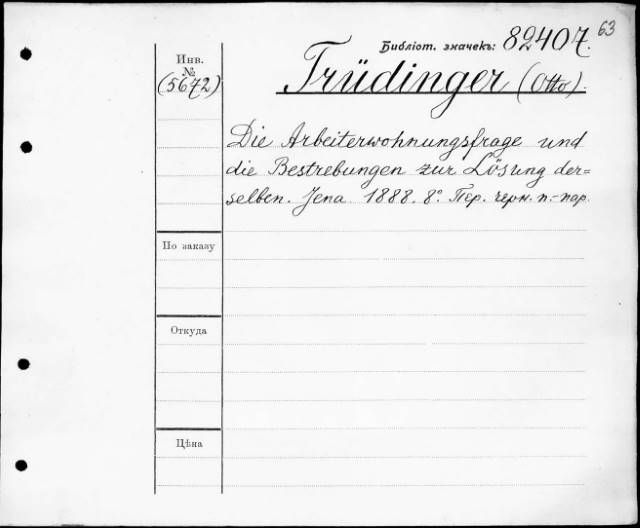 63
Библіот. значекъ: 82407.
Инв.
№
(5672)
Trüdinger (Otto).
Die Arbeiterwohnungsfrage und
die Bestrebungen zur Lösung der=
selben. Jena. 1888. 8º. Пер. черн. п.-пар.
По заказу
Откуда
Цѣна